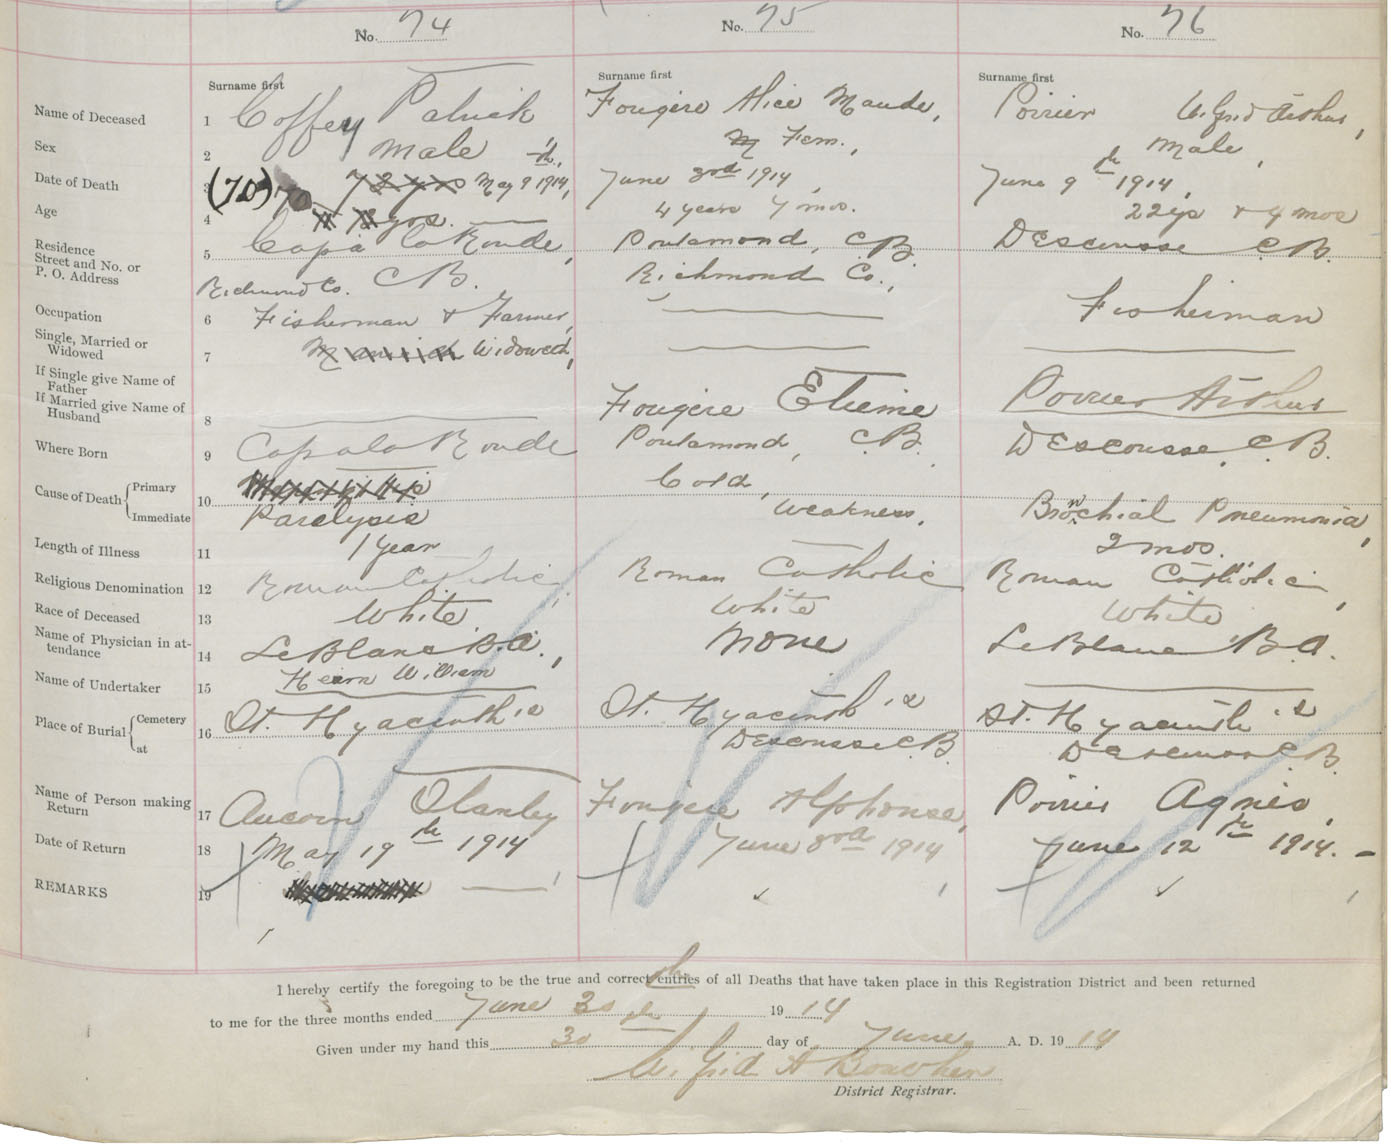 No. 74
No. 75
No. 76
Surname first
Surname first
Surname first
Name of Deceased 1 Coffey Patrick Fougère Alice Maude, Poirier Wilfrid Arthur,
Sex 2 male M Fem., Male,
Date of Death 3 (70) 70 72 yrs May 9th 1914, June 3rd 1914, June 9th 1914,
Age 4 yrs. 4 years 7 mos. 22 yrs + 4 mos
Residence
Street and No. or
P. O. Address
5 Cape La Ronde, Poulamond, C.B. D'Escousse C.B.
Richmond Co. C.B. Richmond Co.,
Occupation 6 Fisherman & Farmer, Fisherman
Single, Married or
Widowed
7 Married Widowed,
If Single give Name of
Father
If Married give Name of
Husband
8 Fougère Etieine Poirier Arthur
Where Born 9 Cap La Ronde Poulamond, C.B. D'Escousse, C.B.
Cause of Death Primary
Immediate
10 Cold,
Paralysis Weakness, Bronchial Pneumonia,
Length of Illness 11 1 year 2 mos.
Religious Denomination 12 Roman Catholic, Roman Catholic Roman Catholic,
Race of Deceased 13 White White White
Name of Physician in at-
tendance
14 LeBlanc B.A., None LeBlanc B.A.
Name of Undertaker 15 Hearn William
Place of Burial Cemetery
at
16 St. Hyacinth's St. Hyacinth's St. Hyacinth's
D'Escousse C.B. D'Escousse C.B.
Name of Person making
Return
17 Aucoin Stanley Fougère Alphonse, Poirier Agnes,
Date of Return 18 May 19th 1914 June 3rd 1914 June 12th 1914.
REMARKS 19
I hereby certify the foregoing to be the true and correct entries of all Deaths that have taken place in this Registration District and been returned
to me for the three months ended June 30th 1914
Given under my hand this 30 day of June A. D. 1914
Wilfrid A
District Registrar.